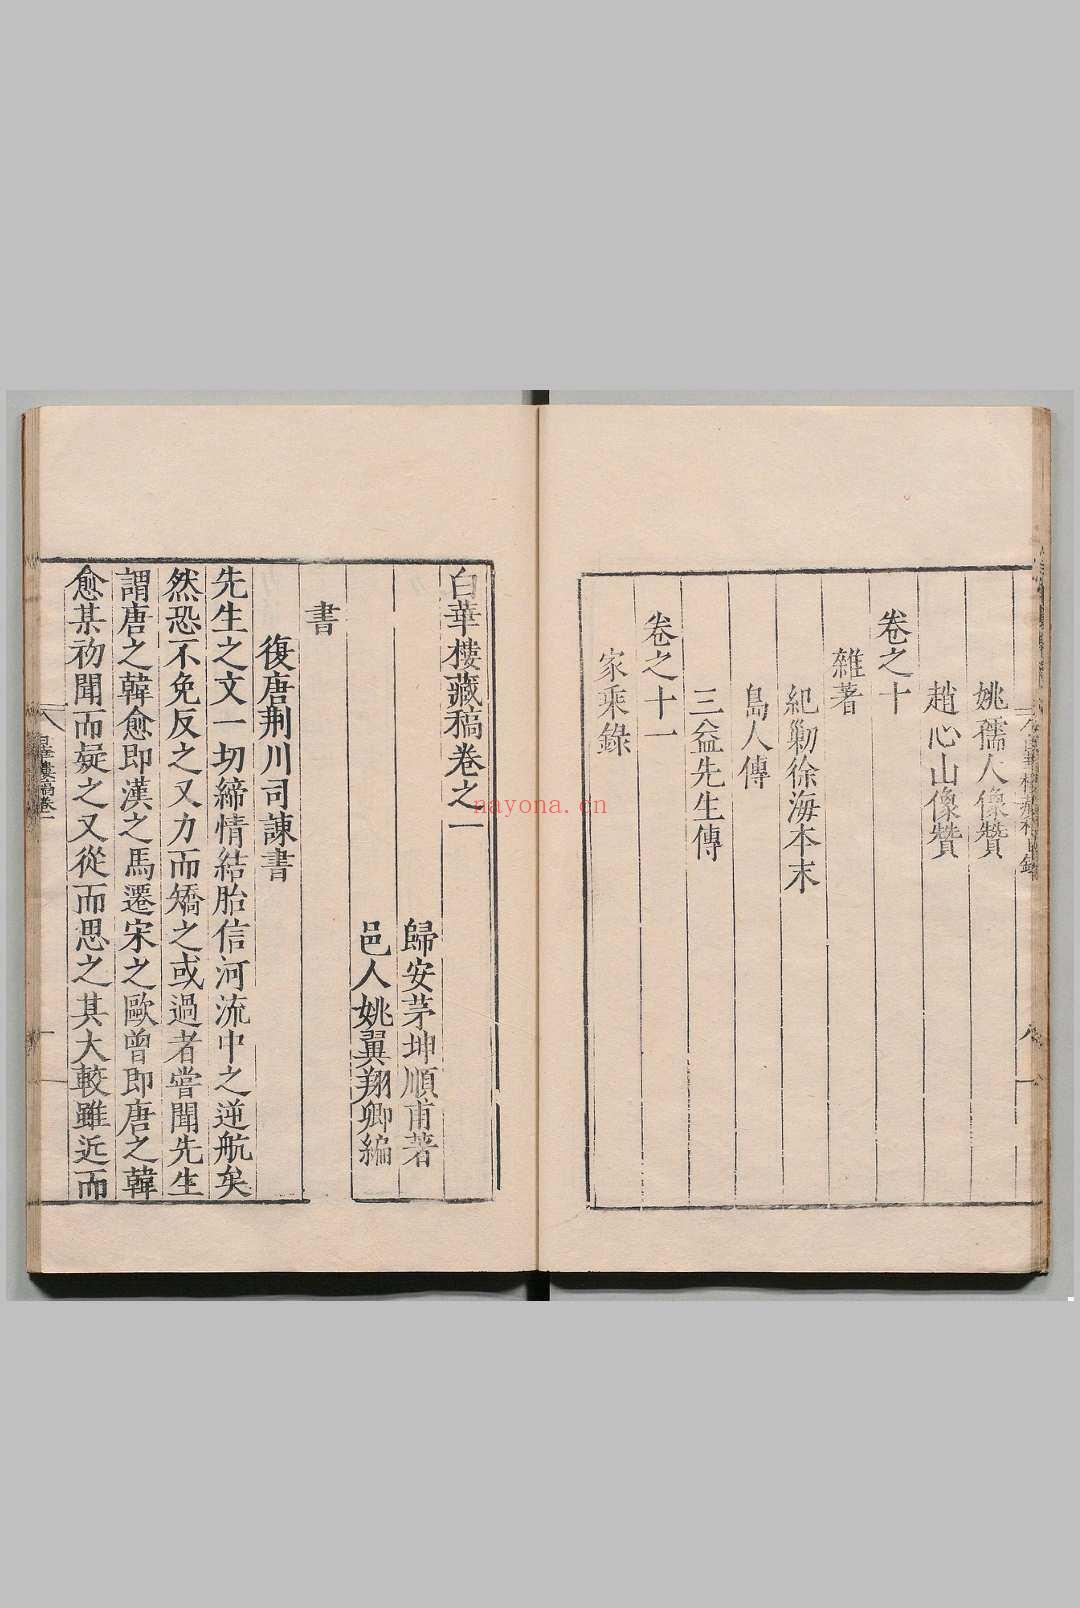 姚孺人像贊
趙心山像贊
卷之十
雜著
紀剿徐海本末
島人傳
三益先生傳
卷之十一
家乘錄
白華樓藏稿卷之一
歸安茅坤順甫著
邑人姚翼翔卿編
書
復唐荆川司諫書
先生之文一切締情結胎信河流中之逆航矣
然恐不免反之又力而矯之或過者嘗聞先生
謂唐之韓愈即漢之馬遷宋之歐曾即唐之韓
愈某初聞而疑之又從而思之其大較雖近而
nayona.cn